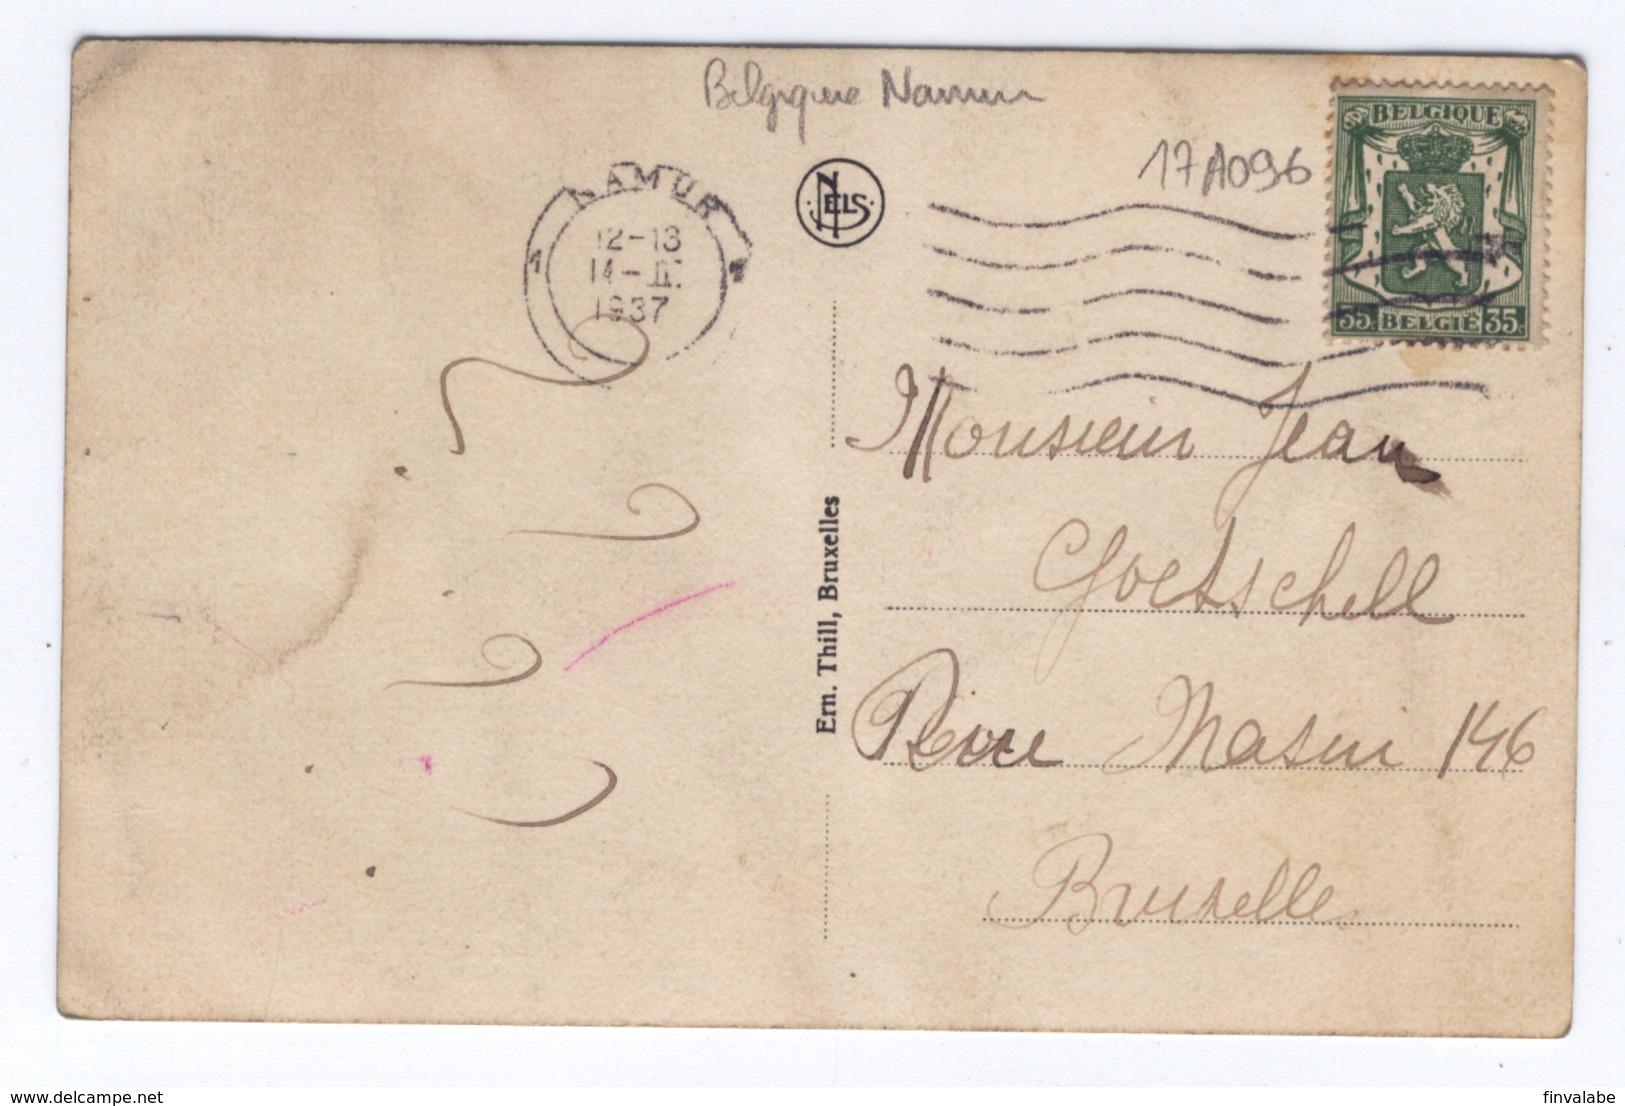 Belgique Namur
17A096
BELGIQUE
35c BELGIË 35c
NAMUR
12-13
14-III
1937
NELS
Monsieur Jean
Goetschell
Rue Masui 146
Bruxelle
Ern. Thill, Bruxelles
www.delcampe.net
finvalabe